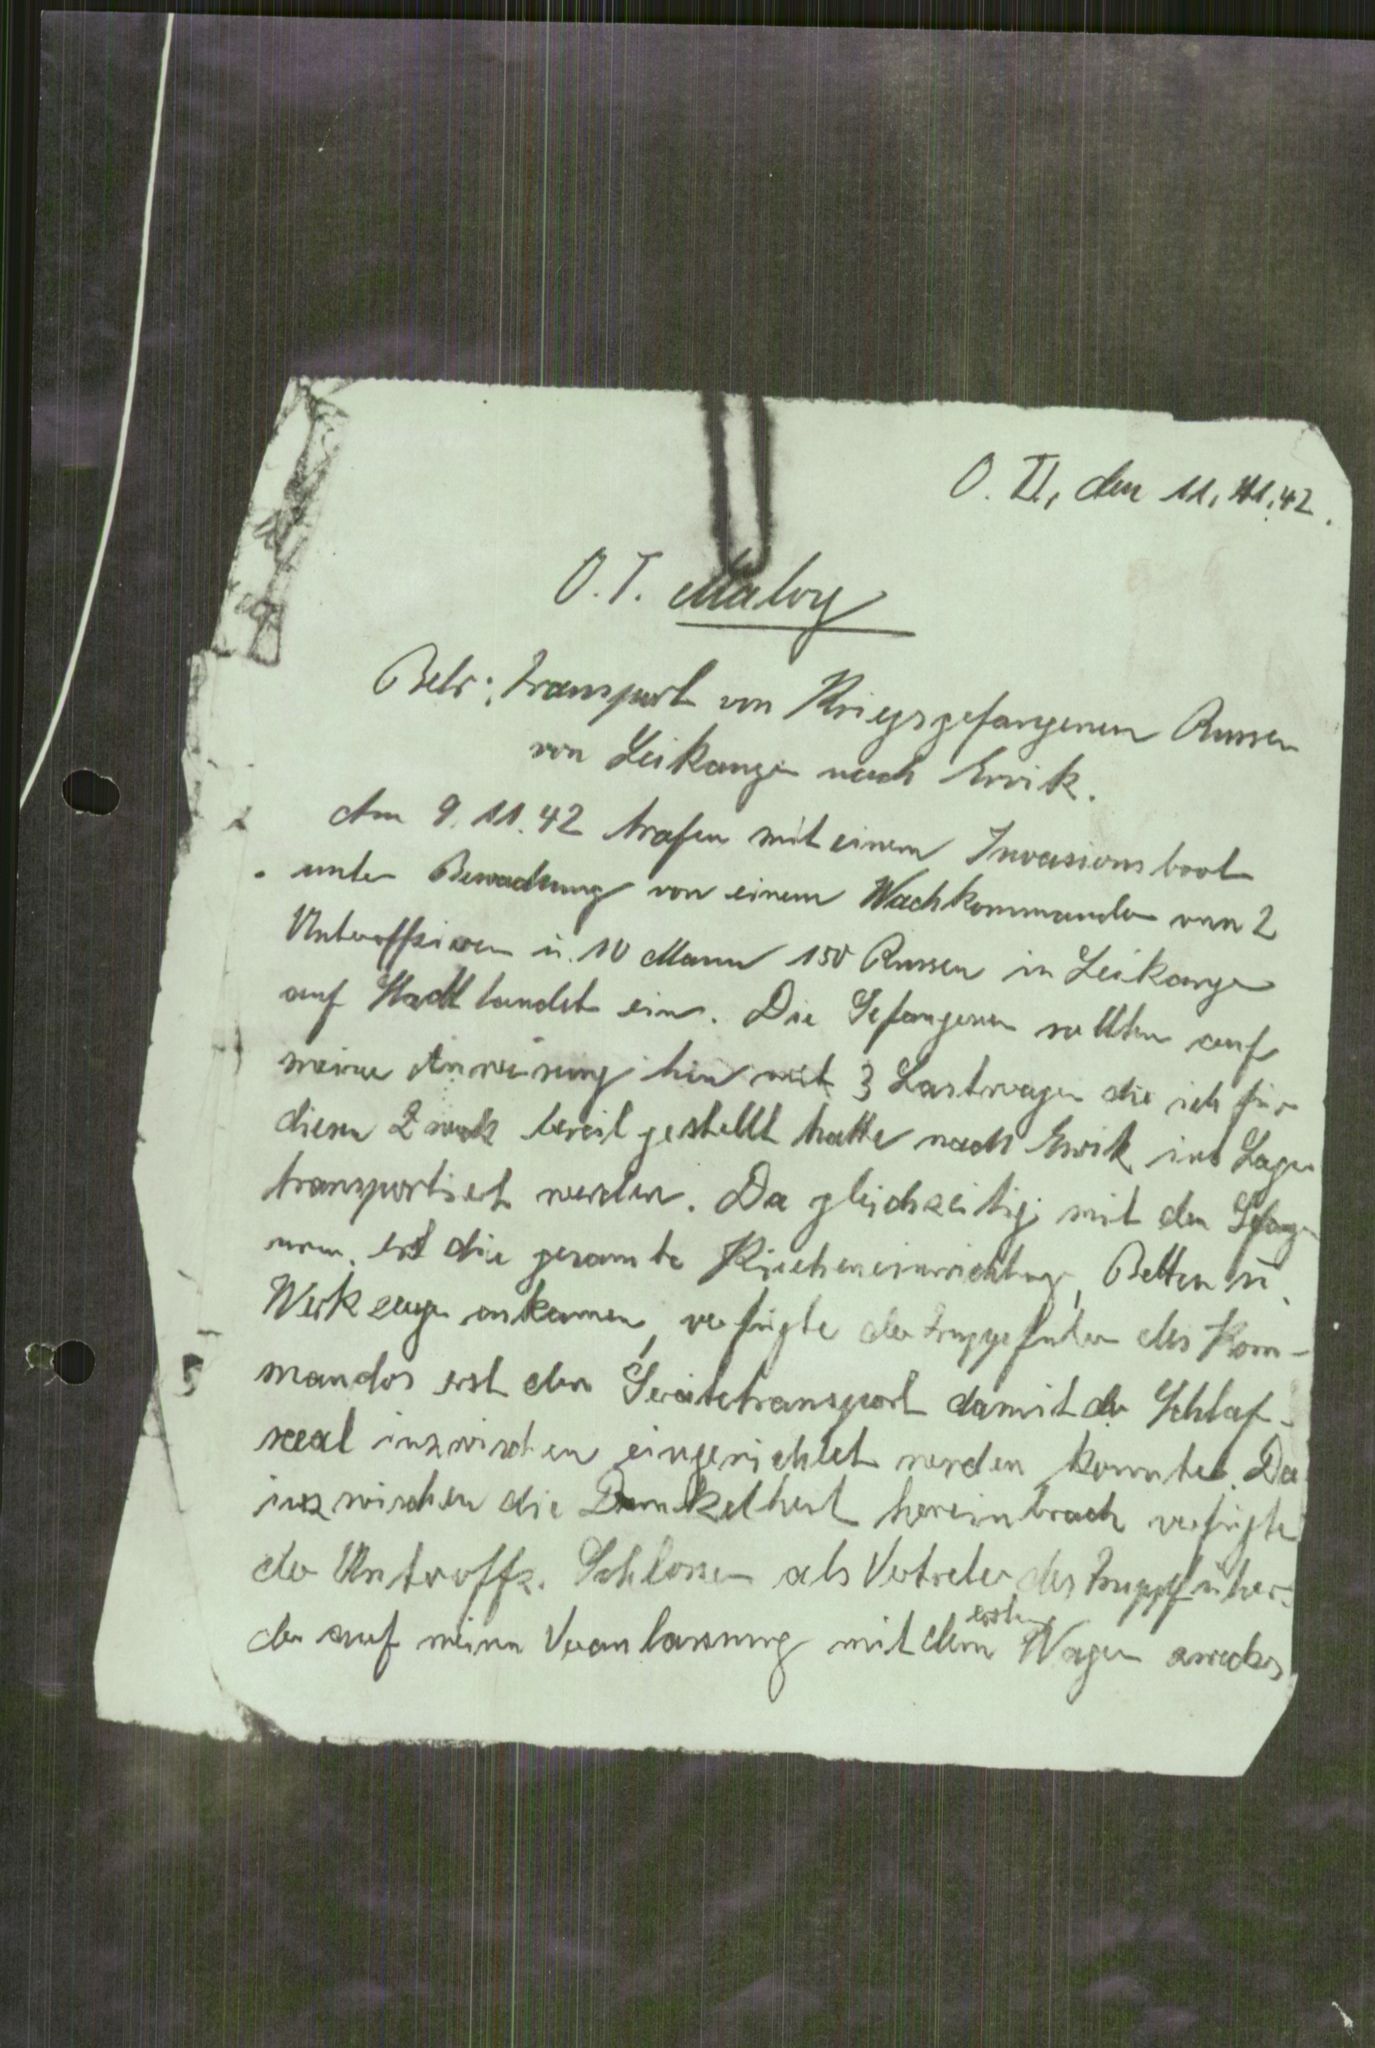 O. U., den 11.11.42.
O.T. Maloy
Betr.: Transport von Kriegsgefangenen Russen
von Leikanger nach Ervik.
Am 9.11.42 trafen mit einem Invasionsboot
unter Bewachung von einem Wachkommando von 2
Unteroffizieren u. 10 Mann 150 Russen in Leikanger
auf Stadtlandet ein. Die Gefangenen sollten auf
meine Anweisung hin mit 3 Lastwagen die ich für
diesen Zweck bereitgestellt hatte nach Ervik ins Lager
transportiert werden. Da gleichzeitig mit den Gefange
nen die gesamte Kücheneinrichtung, Betten u.
Werkzeuge ankamen, verfügte der Truppführer des Kom-
mandos erst den Gerätetransport damit der Schlaf-
saal inzwischen eingerichtet werden konnte. Da
inzwischen die Dunkelheit hereinbrach verfügte
der Unteroffz. Schlosser als Vertreter des Truppführer-
der auf meine Veranlassung mit dem ersten Wagen zwecks